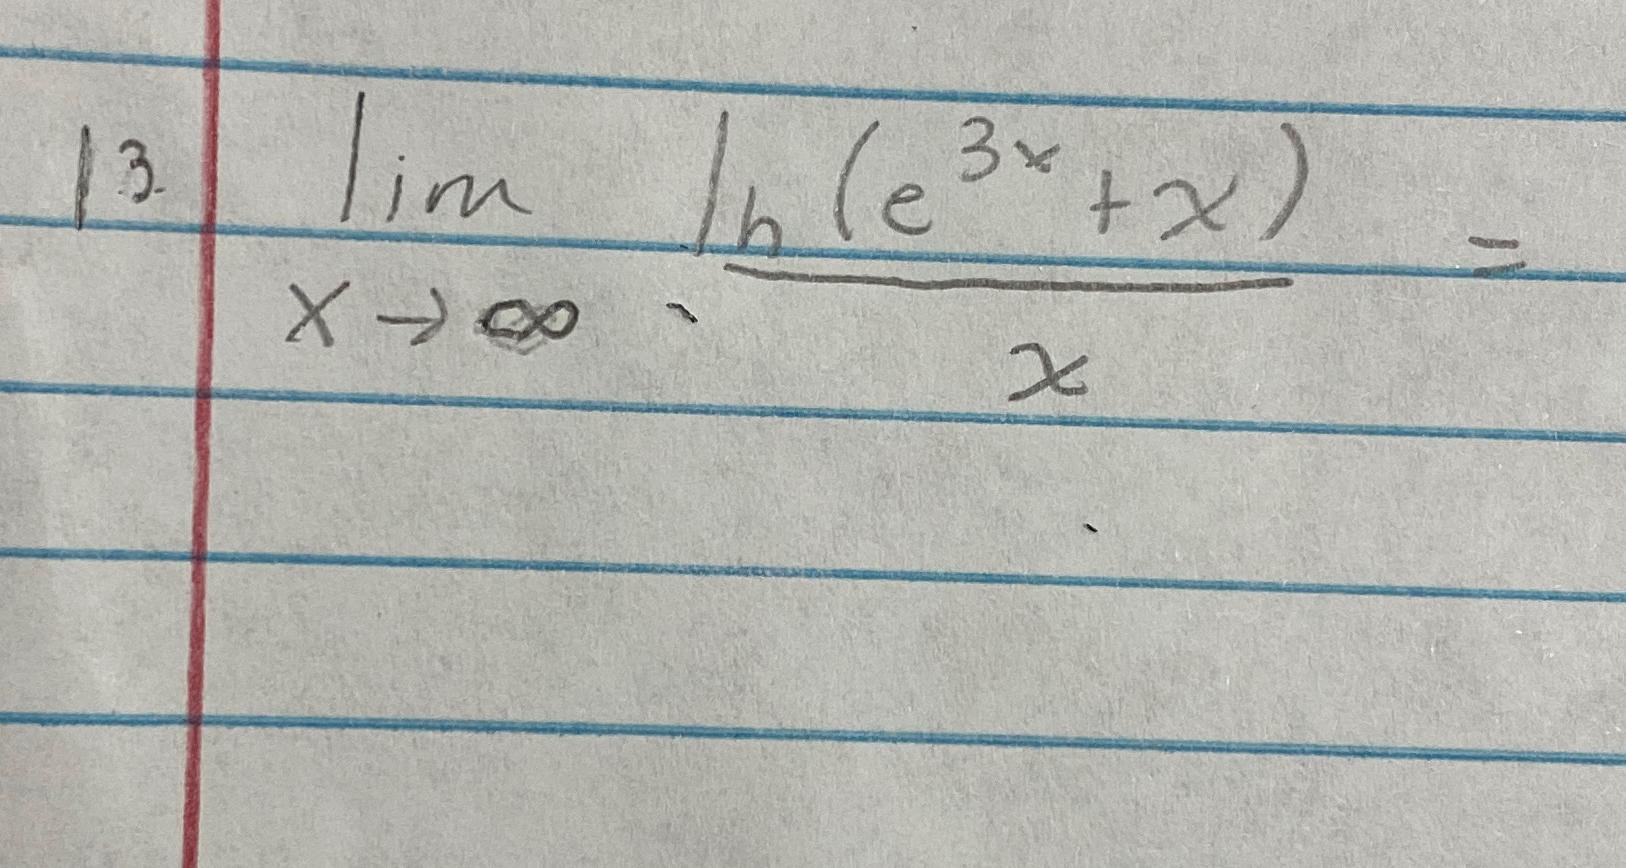 13. lim ln(e^{3x} + x) =
x → ∞ x